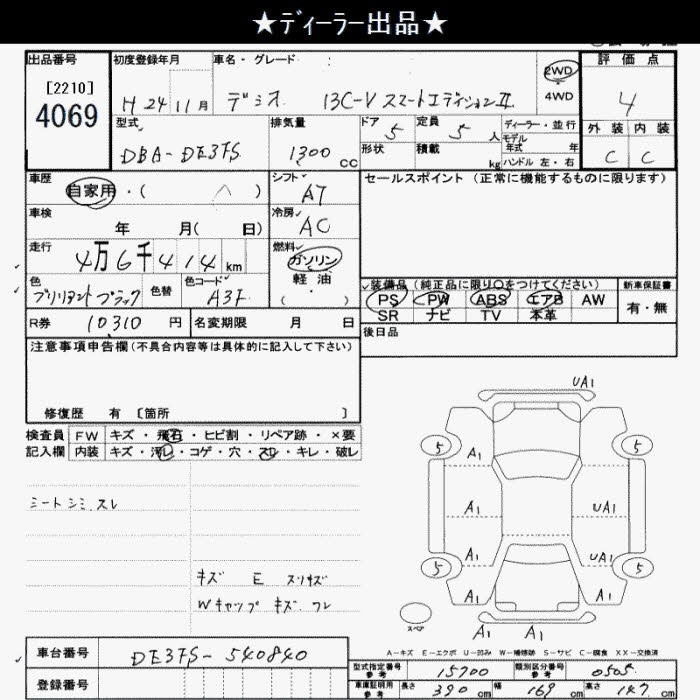 ★ディーラー出品★
出品番号
[2210]
4069
初度登録年月
H 24 11 月
車名・グレード
デミオ 13C-V スマートエディションⅡ
2WD
4WD
評価点
4
外装 内装
C C
型式
DBA-DE3FS
排気量
1300 cc
ドア 5
定員 5 人
形状
積載 kg
ディーラー・並行
モデル年式 年
ハンドル 左・右
車歴
自家用・( )
シフト
AT
セールスポイント (正常に機能するものに限ります)
車検
年 月( 日)
冷房
AC
走行
4万6千414 km
燃料
ガソリン
軽油
( )
色
ブリリアントブラック
色替
色コード
A3F
装備品 (純正品に限り○をつけてください)
新車保証書
PS PW ABS エアB AW
有・無
SR ナビ TV 本革
R券 10310 円
名変期限 月 日
後日品
注意事項申告欄(不具合内容等は具体的に記入して下さい)
修復歴 有 [箇所 ]
検査員 FW キズ・飛石・ヒビ割・リペア跡・×要
記入欄 内装 キズ・汚レ・コゲ・穴・スレ・キレ・破レ
シートシミ、スレ
キズ E スリキズ
Wキャップ キズ ワレ
UA1
5
5
A1
A1
UA1
A1
UA1
5
5
A1
A1
スペア
A1
A1
A-キズ E-エクボ U-凹み W-補修跡 S-サビ C-腐食 XX-交換済
車台番号 DE3FS-540840
登録番号
型式指定番号 参考 15700
類別区分番号 参考 0505
車庫証明用 参考 長さ 390 cm 幅 169 cm 高さ 147 cm